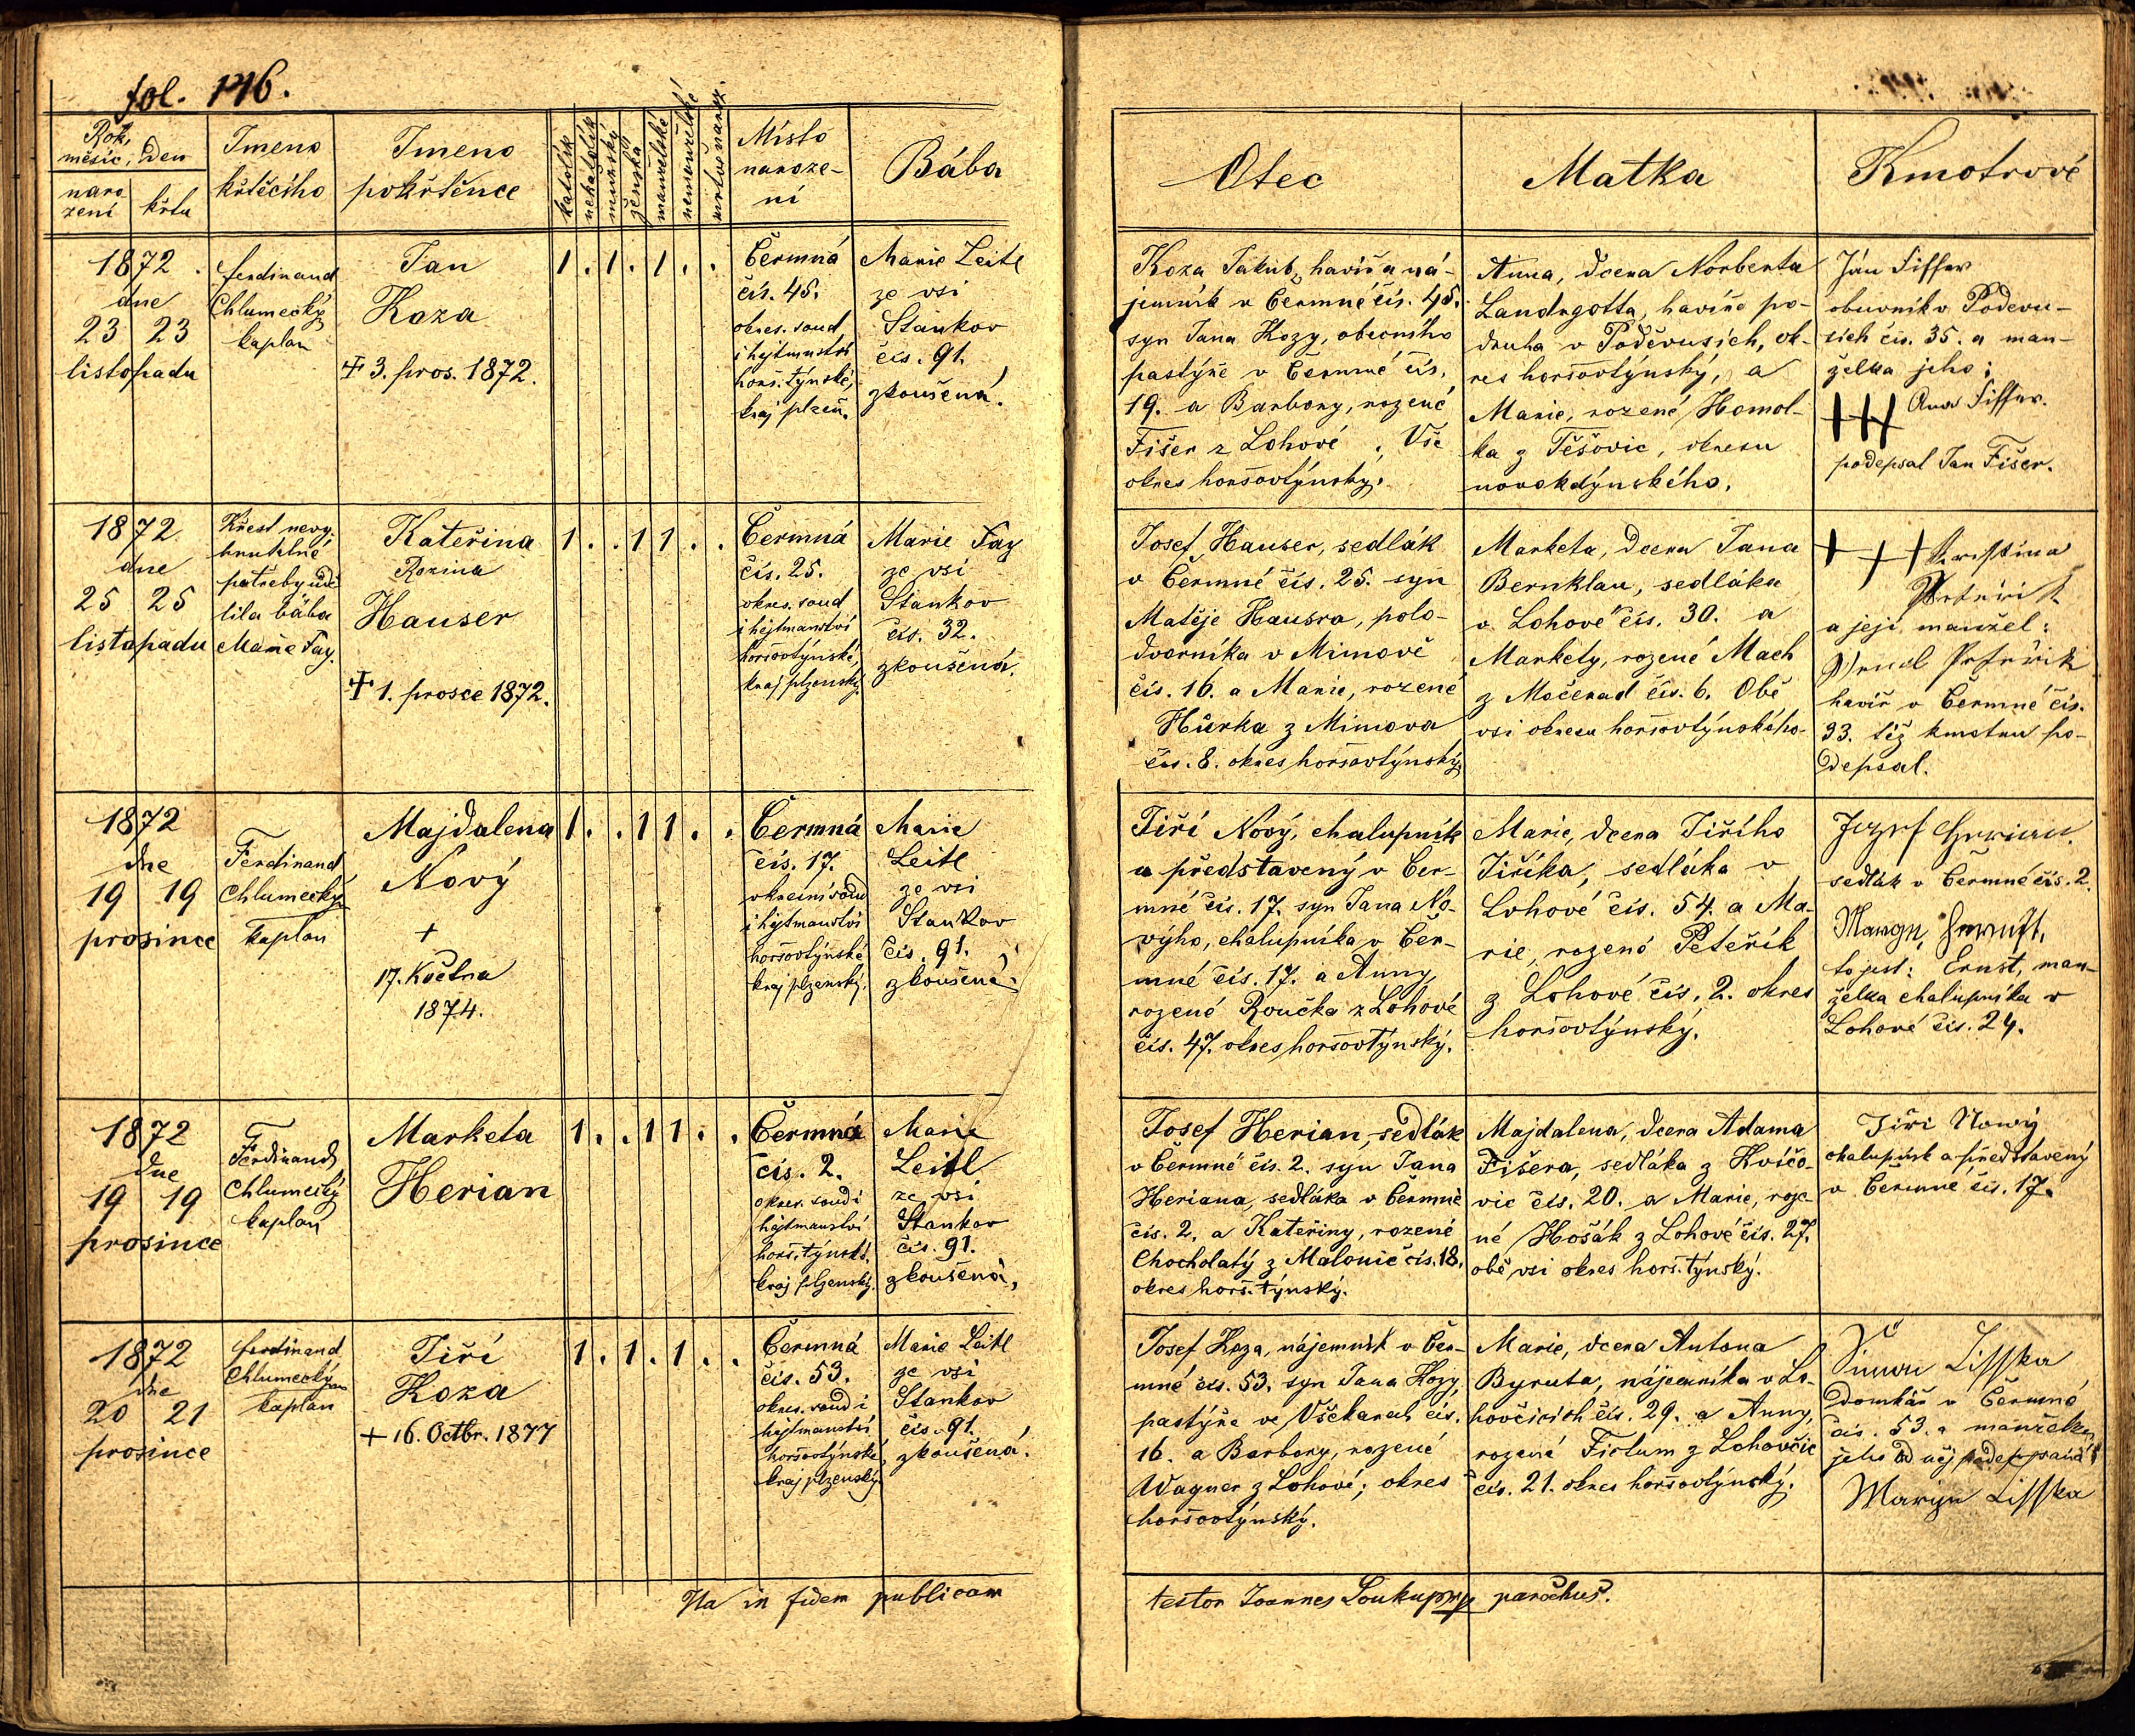 fol. 146.
Rok,
měsíc, den
naro
zení
křtu
Imeno
křtěcího
Imeno
pokřtěnce
katolík
nekatolík
mužský
ženská
manželské
nemanželské
mrtvě naroz.
Místo
naroze-
ní
Bába
Otec
Matka
Kmotrové
1872
dne
23 23
listopadu
Ferdinand
Chlumecký
kaplan
Jan
Koza
+ 3. pros. 1872.
1 . 1 . 1 . .
Čermná
čís. 45.
okres. soud
i hejtmanství
horš. týnské,
kraj plzeň.
Marie Leitl
ze vsi
Staňkov
čís. 91.
zkoušená.
Koza Jakub, havíř a ná-
jemník v Čermné čís. 45.
syn Jana Kozy, obecního
pastýře v Čermné čís.
19. a Barbory, rozené
Fišer z Lohové. Vše
okres horšovtýnský.
Anna, dcera Norberta
Landsgotta, havíře po-
druha v Poděvusích, ok-
res horšovtýnský, a
Marie, rozené Homol-
ka z Těšovic, okresu
novokdýnského.
Ján Fiffer
obuvník v Podevu-
sích čís. 35. a man-
želka jeho;
+++ Ana Fiffer.
podepsal Jan Fišer.
1872
dne
25 25
listopadu
Křest nevy-
hnutelné
potřeby udě
lila bába
Marie Fay.
Kateřina
Rozina
Hauser
+ 1. prosce 1872.
1 . . 1 1 . .
Čermná
čís. 25.
okres. soud
i hejtmanství
horšovtýnské,
kraj plzenský.
Marie Fay
ze vsi
Staňkov
čís. 32.
zkoušená.
Josef Hauser, sedlák
v Čermné čís. 25. syn
Matěje Hausra, polo-
dvorníka v Mimově
čís. 16. a Marie, rozené
Hůrka z Mimova
čís. 8. okres horšovtýnský.
Marketa, dcera Jana
Bernklau, sedláka
v Lohové čís. 30. a
Markety, rozené Mach
z Močerad čís. 6. Obě
vsi okresu horšovtýnského.
+ + +
a její manžel:
havíř v Čermné čís.
33. též kmotru po-
depsal.
1872
dne
19 19
prosince
Ferdinand
Chlumecký
kaplan
Majdalena
Nový
+
17. Května
1874.
1 . . 1 1 . .
Čermná
čís. 17.
okresní soud
i hejtmanství
horšovtýnské
kraj plzenský.
Marie
Leitl
ze vsi
Staňkov
čís. 91.
zkoušená.
Jiří Nový, chalupník
a představený v Čer-
mné čís. 17. syn Jana No-
výho, chalupníka v Čer-
mné čís. 17. a Anny,
rozené Roučka z Lohové
čís. 47. okres horšovtýnský.
Marie, dcera Jiřího
Jiříka, sedláka v
Lohové čís. 54. a Ma-
rie, rozené Peteřík
z Lohové čís. 2. okres
horšovtýnský.
Jozef Herian.
sedlák v Čermné čís. 2.
to jest: Ernst, man-
želka chalupníka v
Lohové čís. 24.
1872
dne
19 19
prosince
Ferdinand
Chlumecký
kaplan
Marketa
Herian
1 . . 1 1 . .
Čermná
čís. 2.
okres. soud i
hejtmanství
horš. týnské.
kraj plzenský.
Marie
Leitl
ze vsi
Staňkov
čís. 91.
zkoušená,
Josef Herian, sedlák
v Čermné čís. 2. syn Jana
Heriana, sedláka v Čermné
čís. 2. a Kateřiny, rozené
Chocholatý z Malonic čís. 18.
okres horš. týnský.
Majdalena, dcera Adama
Fišera, sedláka z Kvíčo-
vic čís. 20. a Marie, roze-
né Hošák z Lohové čís. 27.
obě vsi okres horš. týnský.
Jiři Nowý
chalupník a představený
v Čermné čís. 17.
1872
dne
20 21
prosince
Ferdinand
Chlumecký
kaplan
Jiří
Koza
+ 16. Octbr. 1877
1 . 1 . 1 . .
Čermná
čís. 53.
okres. soud i
hejtmanství
horšovtýnské,
kraj plzenský.
Marie Leitl
ze vsi
Staňkov
čís. 91.
zkoušená.
Josef Koza, nájemník v Čer-
mné čís. 53. syn Jana Kozy,
pastýře ve Všekarech čís.
16. a Barbory, rozené
Wagner z Lohové; okres
horšovtýnský.
Marie, dcera Antona
Byruta, nájemníka v Lo-
hovčicích čís. 29. a Anny,
rozené Fictum z Lohovčic
čís. 21. okres horšovtýnský.
Simon Lisska
domkář v Čermné
čís. 53. a manželka
jeho od něj podepsaná
Marye Lisska
Ita in fidem publicam
testor Joannes Soukup mp parochus.